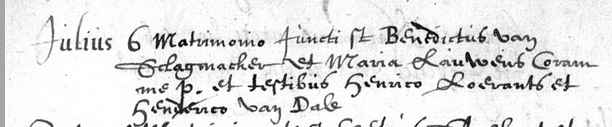 Julius 6 Matrimonio Juncti st Benedictus van
Slagmacher et Maria Lauwens Coram
me p. et testibus Henrico Roerants et
Henderico van Dale